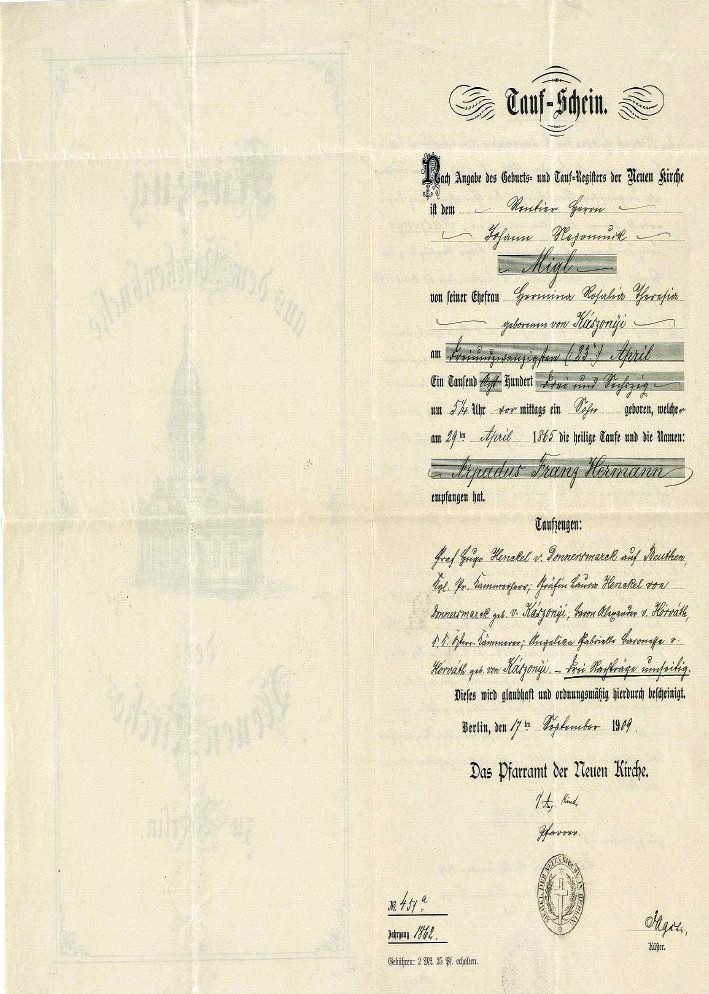 Tauf-Schein.
Nach Angabe des Geburts- und Tauf-Registers der Neuen Kirche
ist dem Rentier Herrn
Johann Nepomuck
Migl
von seiner Ehefrau Hermina Rosalia Theresia
geborenen von Kászonyi
am Dreiundzwanzigsten (23.) April
Ein Tausend Acht Hundert Drei und Sechszig
um 5¼ Uhr vor mittags ein Sohn geboren, welcher
am 29ten April 1865 die heilige Taufe und die Namen:
Arpadus Franz Hermann
empfangen hat.
Taufzeugen:
Graf Hugo Henckel v. Donnersmarck auf Beuthen,
Kgl. Pr. Kammerherr, Gräfin Laura Henckel von
Donnersmarck geb. v. Kászonyi, Baron Alexander v. Horváth,
K. K. Österr. Kämmerer, Angelica Gabrielle Baronesse v.
Horváth geb. von Kászonyi. – Drei Nachträge umseitig.
Dieses wird glaubhaft und ordnungsmäßig hierdurch bescheinigt.
Berlin, den 17ten September 1909.
Das Pfarramt der Neuen Kirche.
Pfarrer.
№ 451a
Jahrgang 1862.
Küster.
Gebühren: 2 Mk. 25 Pf. erhalten.
Auszug
aus dem Kirchenbuche
der
Neuen Kirche
zu Berlin.